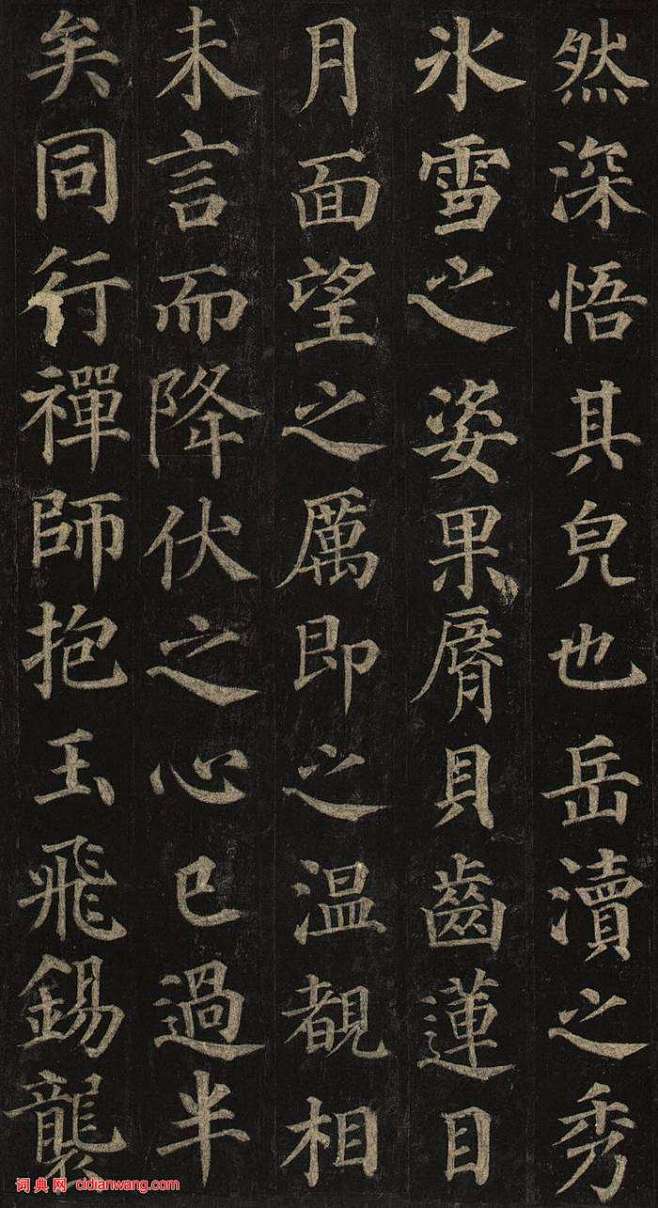 然深悟其皃也岳瀆之秀
氷雪之姿果脣貝齒蓮目
月面望之厲即之温覩相
未言而降伏之心已過半
矣同行禪師抱玉飛錫襲
词典网 cidianwang.com